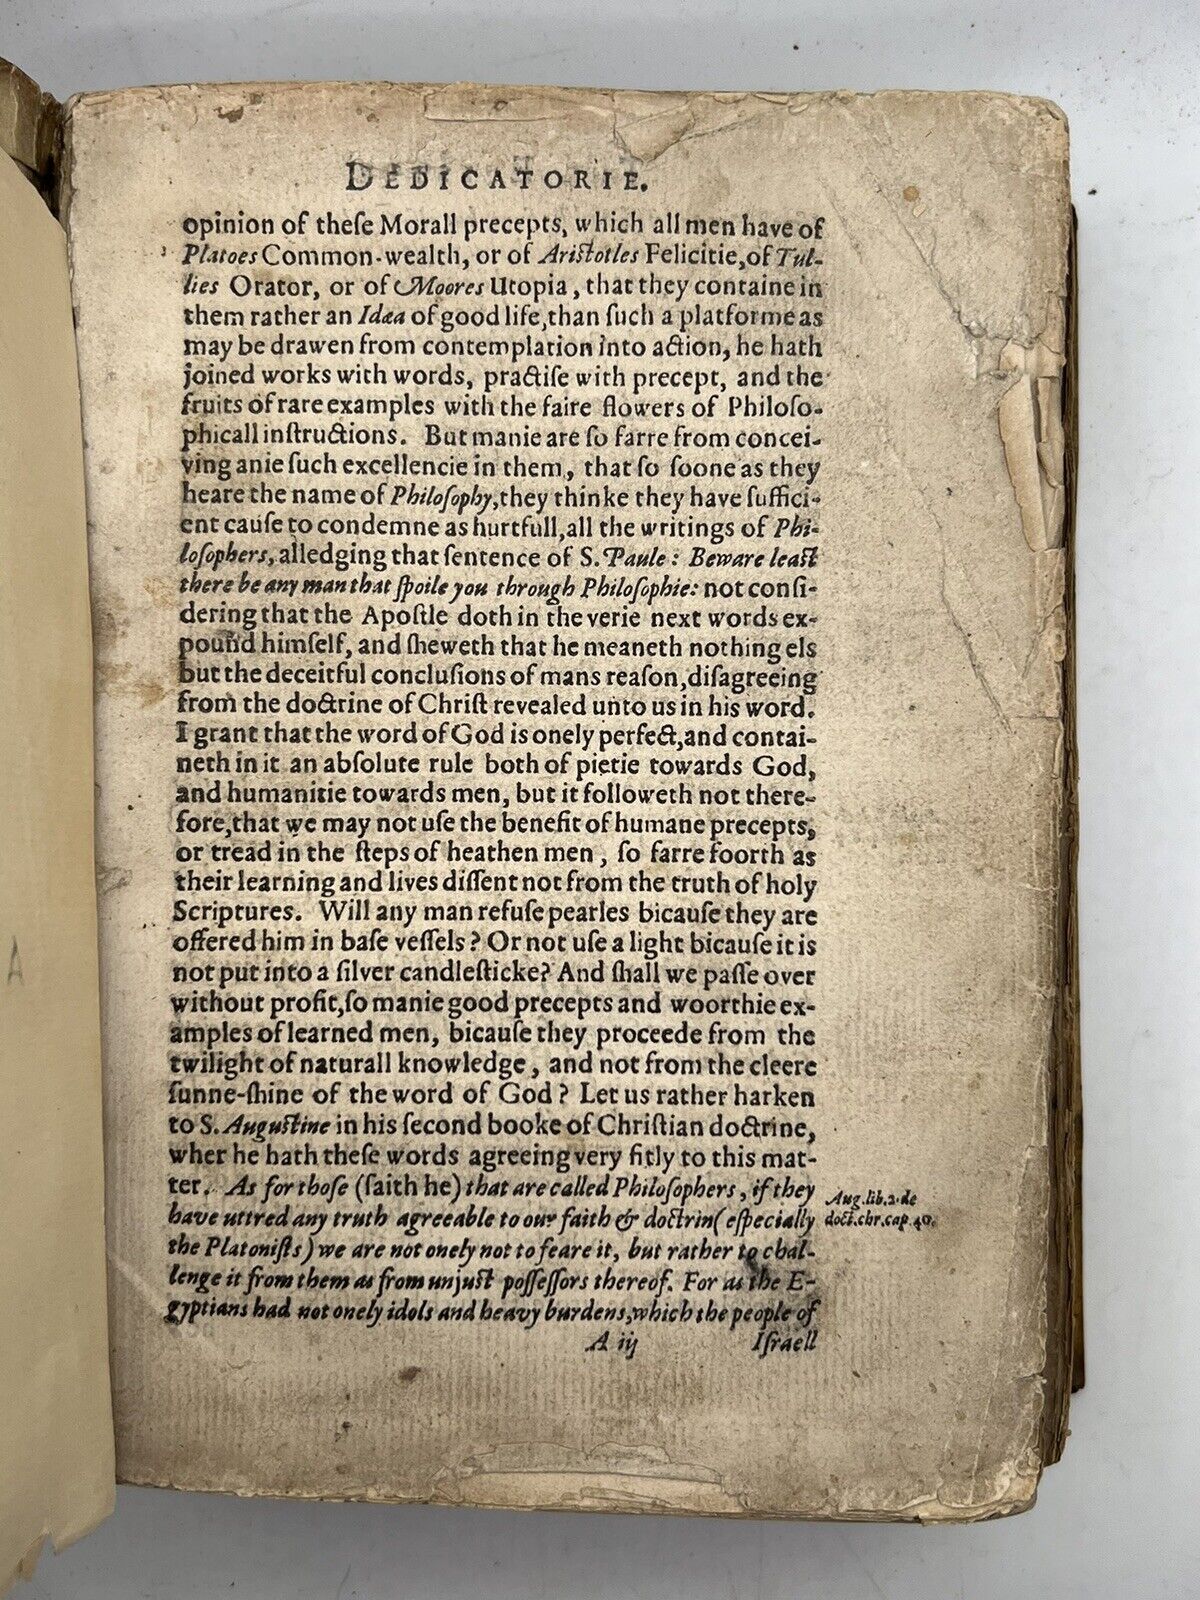 DEDICATORIE.
opinion of theſe Morall precepts, which all men have of
Platoes Common-wealth, or of Ariſtotles Felicitie, of Tul-
lies Orator, or of Moores Utopia, that they containe in
them rather an Idæa of good life, than ſuch a platforme as
may be drawen from contemplation into action, he hath
joined works with words, practiſe with precept, and the
fruits of rare examples with the faire flowers of Philoſo-
phicall inſtructions. But manie are ſo farre from concei-
ving anie ſuch excellencie in them, that ſo ſoone as they
heare the name of Philoſophy, they thinke they have ſuffici-
ent cauſe to condemne as hurtfull, all the writings of Phi-
loſophers, alledging that ſentence of S. Paule: Beware leaſt
there be any man that ſpoile you through Philoſophie: not conſi-
dering that the Apoſtle doth in the verie next words ex-
pound himſelf, and ſheweth that he meaneth nothing els
but the deceitful concluſions of mans reaſon, diſagreeing
from the doctrine of Chriſt revealed unto us in his word.
I grant that the word of God is onely perfect, and contai-
neth in it an abſolute rule both of pietie towards God,
and humanitie towards men, but it followeth not there-
fore, that we may not uſe the benefit of humane precepts,
or tread in the ſteps of heathen men, ſo farre foorth as
their learning and lives diſſent not from the truth of holy
Scriptures. Will any man refuſe pearles bicauſe they are
offered him in baſe veſſels? Or not uſe a light bicauſe it is
not put into a ſilver candleſticke? And ſhall we paſſe over
without profit, ſo manie good precepts and woorthie ex-
amples of learned men, bicauſe they proceede from the
twilight of naturall knowledge, and not from the cleere
ſunne-ſhine of the word of God? Let us rather harken
to S. Auguſtine in his ſecond booke of Chriſtian doctrine,
wher he hath theſe words agreeing very fitly to this mat-
ter. As for thoſe (ſaith he) that are called Philoſophers, if they
have uttred any truth agreeable to our faith & doctrin (eſpecially
the Platoniſts) we are not onely not to feare it, but rather to chal-
lenge it from them as from unjuſt poſſeſſors thereof. For as the E-
gyptians had not onely idols and heavy burdens, which the people of
Aug. lib. 2. de
doct. chr. cap. 40.
A iij Iſraell
A